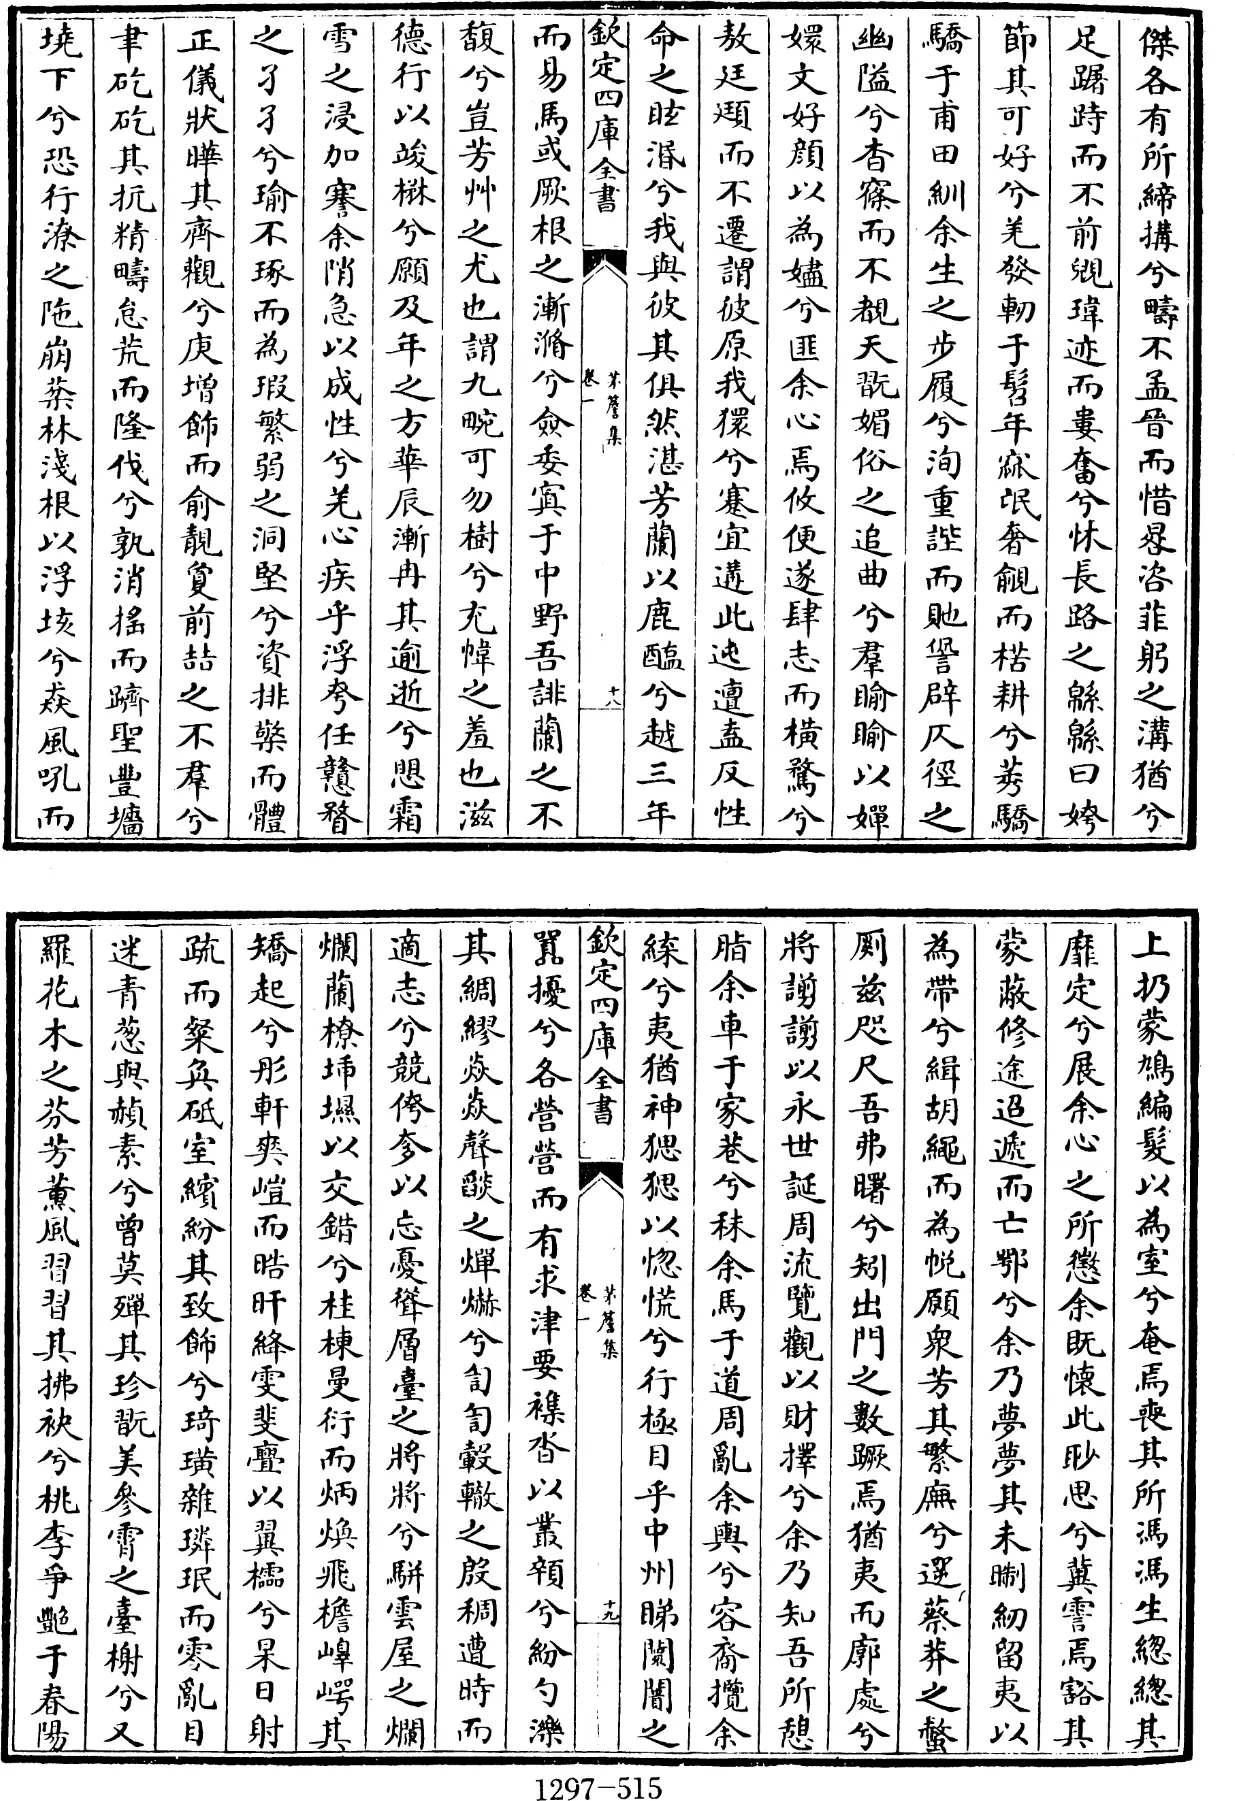 傑各有所締搆兮疇不孟晉而惜晷咨菲躬之溝猶兮
足躅跱而不前覜瑋迹而婁奮兮怵長路之緜緜曰姱
節其可好兮羌發軔于髫年寐氓奢觎而楛耕兮莠驕
驕于甫田紃余生之步履兮洵重誙而貤譽辟仄徑之
幽隘兮杳窱而不覩天翫媚俗之追曲兮羣睮睮以嬋
嬛文好顏以為嫿兮匪余心焉攸便遂肆志而橫騖兮
敖廷頲而不遷謂彼原我獧兮蹇宜遘此迍邅盍反性
命之眩湣兮我與彼其俱然湛芳蘭以鹿醢兮越三年
欽定四庫全書
茅簷集
卷一
十八
而易馬或厥根之漸滫兮僉委寘于中野吾誹蘭之不
馥兮豈芳艸之尤也謂九畹可勿樹兮充幃之羞也滋
德行以竣楙兮願及年之方華辰漸冉其逾逝兮愳霜
雪之浸加謇余陗急以成性兮羌心疾乎浮夸任戇瞀
之孑孑兮瑜不琢而為瑕繁弱之洞堅兮資排檠而體
正儀狀曄其齊觀兮庚增飾而俞靚夐前喆之不羣兮
聿矻矻其抏精疇怠荒而隆伐兮孰消搖而躋聖豐墻
墝下兮恐行潦之陁崩蘂林淺根以浮垓兮猋風吼而
上扔蒙鳩編髮以為室兮奄焉喪其所馮馮生總總其
靡定兮展余心之所懲余既懷此眇思兮冀霅焉豁其
蒙蔽修途迢遞而亡鄂兮余乃夢夢其未晣紉留夷以
為帶兮緝胡繩而為帨願衆芳其繁廡兮選蔡莽之蟞
厠兹咫尺吾弗曙兮矧出門之數蹶焉猶夷而廓處兮
將謭謭以永世誕周流覽觀以財擇兮余乃知吾所憩
脂余車于家巷兮秣余馬于道周亂余輿兮容裔攬余
練兮夷猶神猲猲以惚慌兮行極目乎中州睇闤闠之
欽定四庫全書
茅簷集
卷一
十九
囂擾兮各營營而有求津要襍沓以叢顇兮紛勺濼
其綢繆焱焱聲燄之燀爀兮訇訇轂轍之殷稠遭時而
適志兮競侉奓以忘憂聳層臺之將將兮駢雲屋之爛
爛蘭橑㙛壖以交錯兮桂棟曼衍而炳煥飛檐崞崿其
矯起兮彤軒爽嵦而晧旰絳雯斐亹以翼檽兮杲日射
疏而粲奐砥室繽紛其致飾兮琦璜雜璘珉而零亂目
迷青葱與赬素兮曾莫殫其珍翫美參霄之臺榭兮又
羅花木之芬芳薰風習習其拂袂兮桃李爭艷于春陽
1297-515